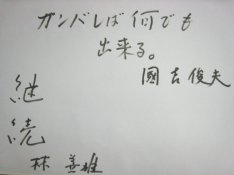 ガンバレば何でも
出来る。
國吉俊夫
継続
林善雄